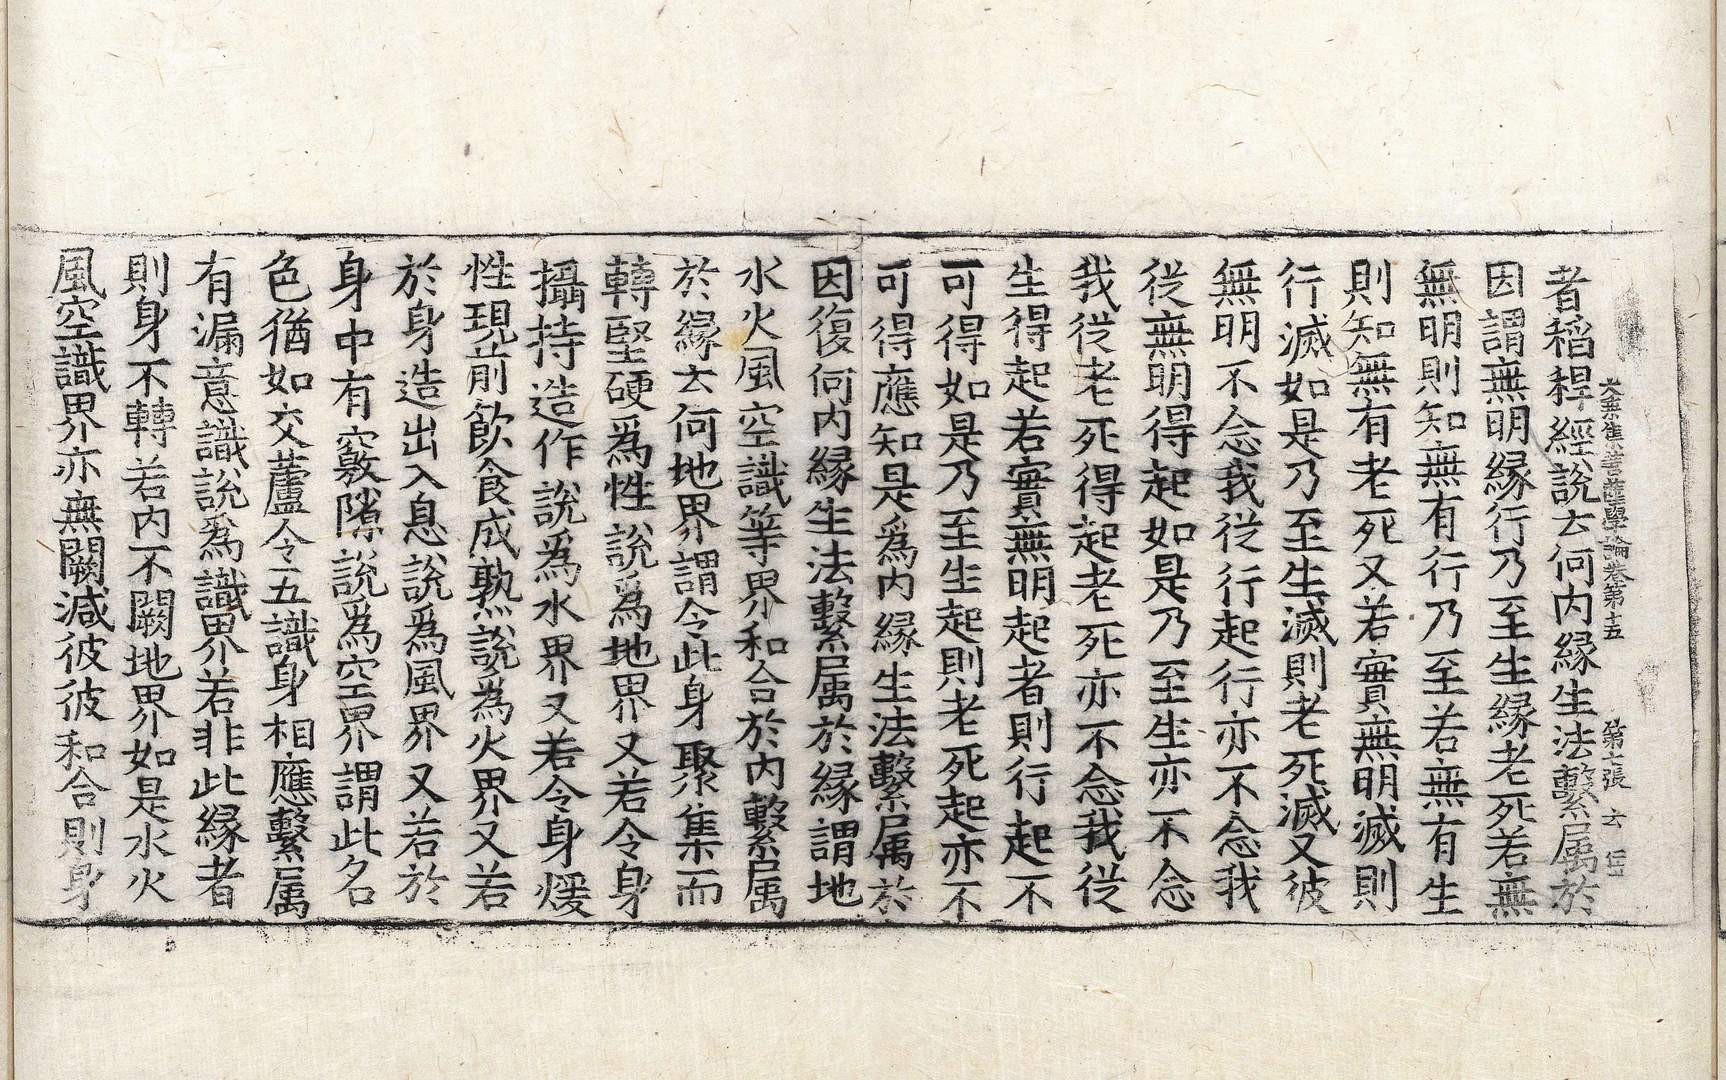 大乘集菩薩學論卷第十五　第七張　去
者稻稈經說云何內緣生法繫屬於
因謂無明緣行乃至生緣老死若無
無明則知無有行乃至若無有生
則知無有老死又若實無明滅則
行滅如是乃至生滅則老死滅又彼
無明不念我從行起行亦不念我
從無明得起如是乃至生亦不念
我從老死得起老死亦不念我從
生得起若實無明起者則行起不
可得如是乃至生起則老死起亦不
可得應知是爲內緣生法繫屬於
因復何內緣生法繫屬於緣謂地
水火風空識等界和合於內繫屬
於緣云何地界謂令此身聚集而
轉堅硬爲性說爲地界又若令身
攝持造作說爲水界又若令身煖
性現前飲食成熟說爲火界又若
於身造出入息說爲風界又若於
身中有竅隙說爲空界謂此名
色猶如交蘆令五識身相應繫屬
有漏意識說爲識界若非此緣者
則身不轉若內不闕地界如是水火
風空識界亦無闕減彼彼和合則身